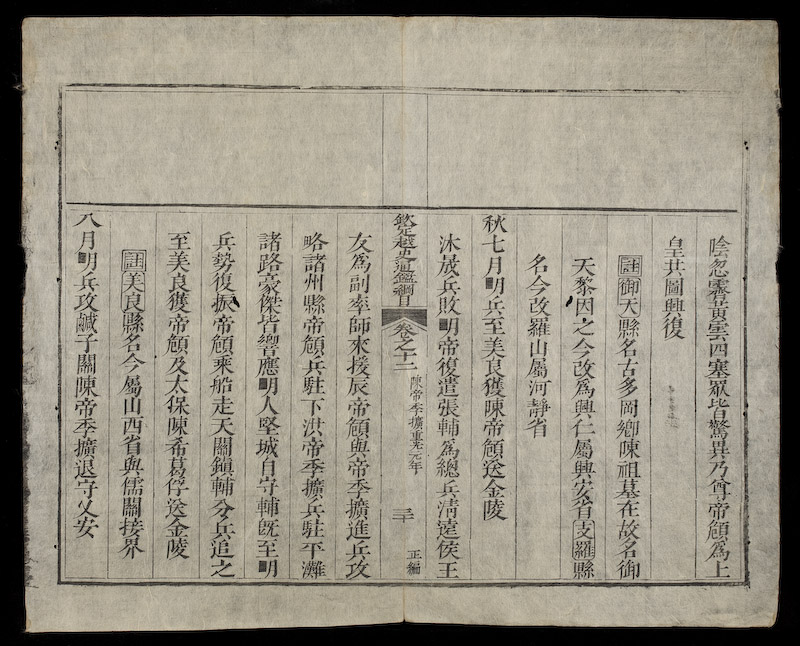 陰忽霽黃雲四塞眾皆驚異乃尊帝頠爲上
皇共圖興復
註御天縣名古多岡鄉陳祖墓在故名御
天黎因之今改爲興仁屬興安省支羅縣
名今改羅山屬河靜省
秋七月明兵至美良獲陳帝頠送金陵
沐晟兵敗明帝復遣張輔爲總兵淸遠侯王
欽定越史通鑑綱目 卷之十二 陳帝季擴重光元年 三十 正編
友爲副率師來援辰帝頠與帝季擴進兵攻
略諸州縣帝頠兵駐下洪帝季擴兵駐平灘
諸路豪傑皆響應明人堅城自守輔旣至明
兵勢復振帝頠乘船走天關鎭輔分兵追之
至美良獲帝頠及太保陳希葛俘送金陵
註美良縣名今屬山西省與儒關接界
八月明兵攻鹹子關陳帝季擴退守乂安